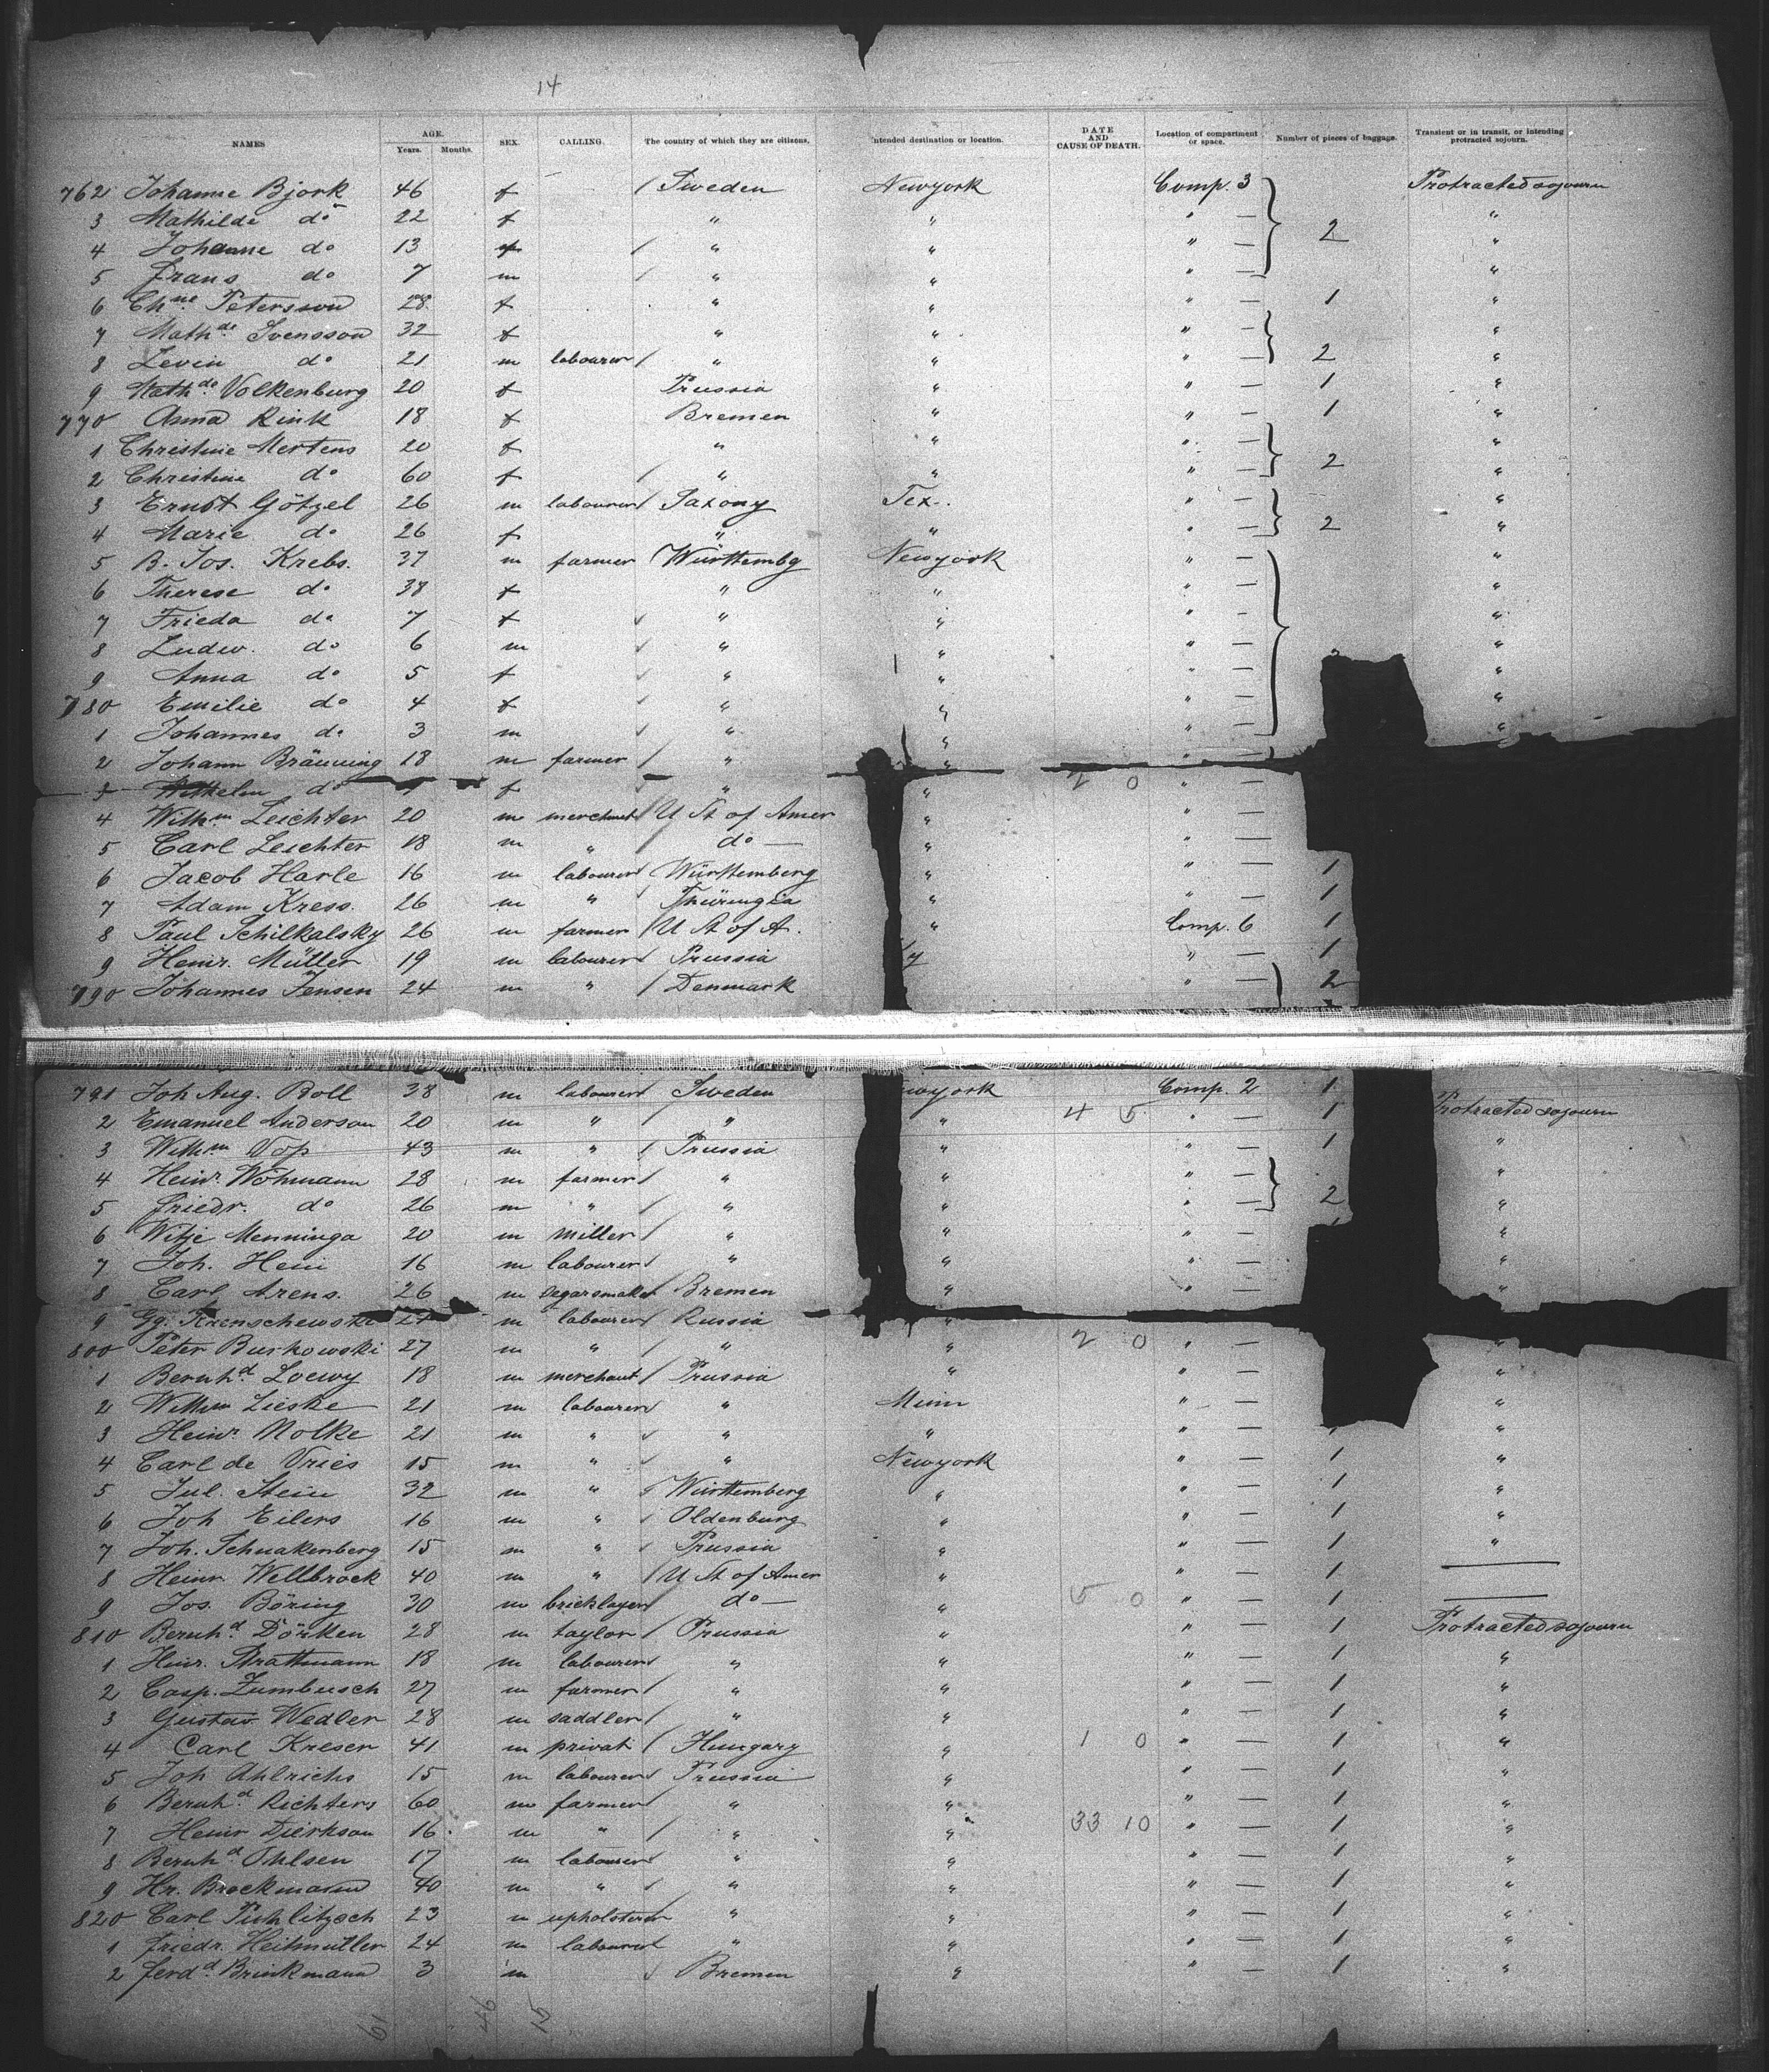 14
NAMES AGE. Years. Months. SEX. CALLING. The country of which they are citizens. Intended destination or location. DATE AND CAUSE OF DEATH. Location of compartment or space. Number of pieces of baggage. Transient or in transit, or intending protracted sojourn.
762 Johanne Bjork 46 f / Sweden Newyork Comp. 3 Protracted sojourn
3 Mathilde do 22 f " " " — 2 "
4 Johanne do 13 f / " " " — "
5 Frans do 7 m / " " " — "
6 Chne Petersson 28 f " " " — 1 "
7 Mathde Svensson 32 f " " " — "
8 Levin do 21 m labourer / " " " — 2 "
9 Mathde Volkenburg 20 f Prussia " " — 1 "
770 Anna Rink 18 f Bremen " " — 1 "
1 Christine Mertens 20 f " " " — "
2 Christine do 60 f / " " " — 2 "
3 Ernst Götzel 26 m labourer / Saxony Tex. " — "
4 Marie do 26 f " " " — 2 "
5 B. Jos. Krebs. 37 m farmer Württembg Newyork " — "
6 Therese do 38 f " " " — "
7 Frieda do 7 f ✓ " " " — "
8 Ludw. do 6 m ✓ " " " — "
9 Anna do 5 f ✓ " " " — "
780 Emilie do 4 f ✓ " " " — "
1 Johannes do 3 m ✓ " " " — "
2 Johann Bräuning 18 m farmer / " " "
3 Wilhelm do f " " 2 0 " —
4 Wilhm Leichter 20 m merchant / U St of Amer " " —
5 Carl Leichter 18 m " / do — " " —
6 Jacob Harle 16 m labourer / Württemberg " " — 1
7 Adam Kress. 26 m " ✓ Thüringia " " — 1
8 Paul Schilkalsky 26 m farmer / U St of A. " Comp. 6 1
9 Heinr. Müller 19 m labourer / Prussia " — 1
790 Johannes Jensen 24 m " / Denmark " — 2
791 Joh Aug. Boll 38 m labourer / Sweden ewyork Comp. 2 1
2 Emanuel Anderson 20 m " / " " 4 5 " — 1 Protracted sojourn
3 Wilhm Vop 43 m " / Prussia " " — 1 "
4 Heinr. Wöhmann 28 m farmer / " " " — "
5 Friedr. do 26 m " / " " " — 2 "
6 Witje Menninga 20 m miller / " " " — "
7 Joh. Hein 16 m labourer / " " " — "
8 Carl Arens. 26 m segarsmaker / Bremen " " — "
9 m labourer / Russia "
800 Peter Burkowski 27 m " / " " 2 0 " — "
1 Bernhd Loewy 18 m merchant / Prussia " " — "
2 Wilhm Lieske 21 m labourer / " Minn " — "
3 Heinr. Nolke 21 m " ✓ " " " — "
4 Carl de Vries 15 m " ✓ " Newyork " — 1 "
5 Jul. Stein 32 m " ✓ Württemberg " " — 1 "
6 Joh Eilers 16 m " ✓ Oldenburg " " — 1 "
7 Joh. Schnakenberg 15 m " ✓ Prussia " " — 1 "
8 Heinr Wellbrock 40 m " / U St of Amer " " — 1 —
9 Jos. Böring 30 m bricklayer / do — " 5 0 " — 1 —
810 Bernhd Dörken 28 m taylor / Prussia " " — 1 Protracted sojourn
1 Heinr. Strattmann 18 m labourer / " " " — 1 "
2 Casp. Zumbusch 27 m farmer / " " " — 1 "
3 Gustav Wedler 28 m saddler / " " " — 1 "
4 Carl Kreser 41 m privat / Hungary " 1 0 " — 1 "
5 Joh Ahlrichs 15 m labourer / Prussia " " — 1 "
6 Bernhd Richters 60 m farmer / " " " — 1 "
7 Heinr Dierkson 16 m " / " " 33 10 " — 1 "
8 Bernhd Ohlsen 17 m labourer / " " " — 1 "
9 Hr. Brockmann 40 m " ✓ " " " — 1 "
820 Carl Puhlitzsch 23 m upholsterer " " " — 1 "
1 Friedr. Heitmüller 24 m labourer / " " " — 1 "
2 Ferdd Brinkmann 3 m ✓ Bremen " " — 1 "
61 46 15